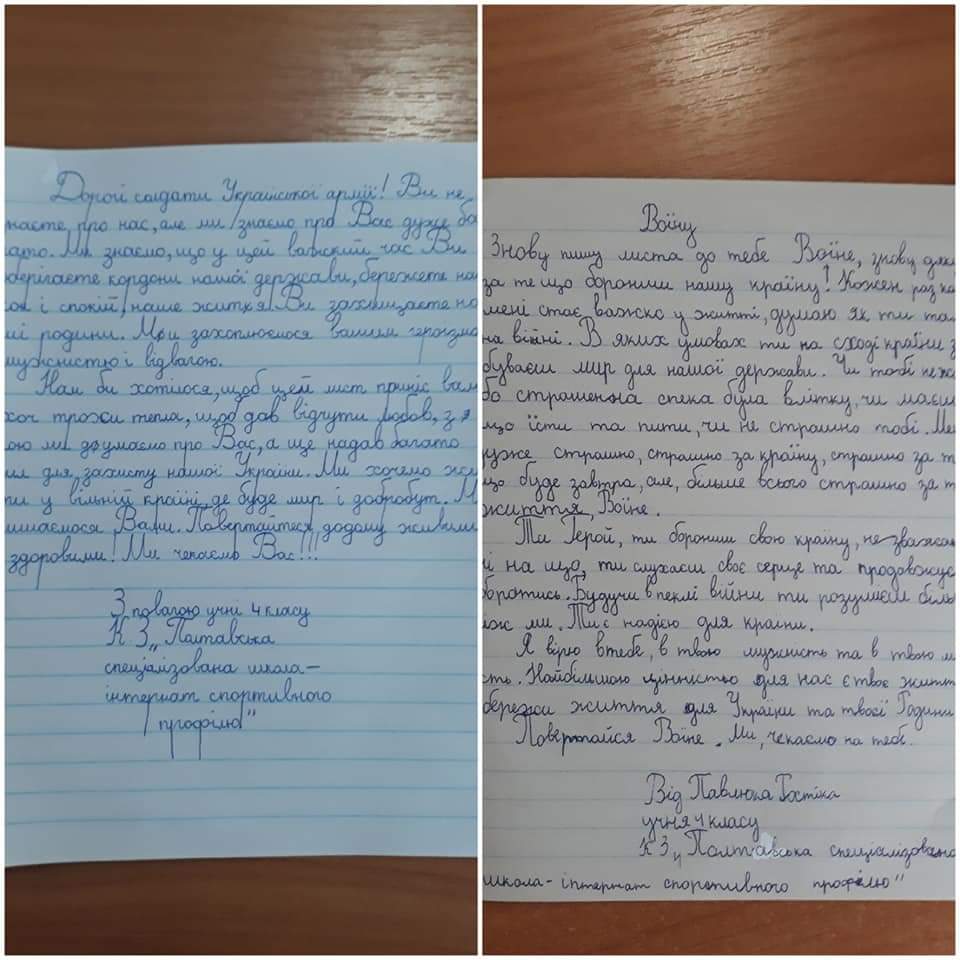 Дорогі солдати Української армії! Ви не
знаєте про нас, але ми знаємо про Вас дуже ба
гато. Ми знаємо, що у цей важкий час Ви
оберігаєте кордони нашої держави, бережете на
сон і спокій, наше життя. Ви захищаєте на
ші родини. Ми захоплюємося вашим героїзмо
мужністю і відвагою.
Нам би хотілося, щоб цей лист приніс вам
хоч трохи тепла, щоб дав відчути любов, з я
ою ми думаємо про Вас, а ще надав багато
ил для захисту нашої України. Ми хочемо жи
ти у вільній країні, де буде мир і добробут. М
ишаємося Вами. Повертайтеся додому живими
здоровими! Ми чекаємо Вас!!!
З повагою учні 4 класу
К З „Полтавська
спеціалізована школа-
інтернат спортивного
профілю"
Воїну
Знову пишу листа до тебе Воїне, знову дяк
за те що борониш нашу країну! Кожен раз ко
мені стає важко у житті, думаю як ти та
на війні. В яких умовах ти на сході країни з
буваєш мир для нашої держави. Чи тобі не жа
бо страшенна спека була влітку, чи маєш
що їсти та пити, чи не страшно тобі. Ме
дуже страшно, страшно за країну, страшно за т
що буде завтра, але, більше всього страшно за т
життя, Воїне.
Ти Герой, ти борониш свою країну, не зважаю
і на що, ти слухаєш своє серце та продовжує
боротись. Будучи в пеклі війни ти розумієш біль
іж ми. Ти є надією для країни.
Я вірю в тебе, в твою мужність та в твою м
сть. Найбільшою цінністью для нас є твоє житт
бережи життя для України та твоєї Родини
Повертайся Воїне. Ми, чекаємо на тебе.
Від Павлюка Ростіка
учня 4 класу
К З „Полтавська спеціалізована
школа-інтернат спортивного профілю"